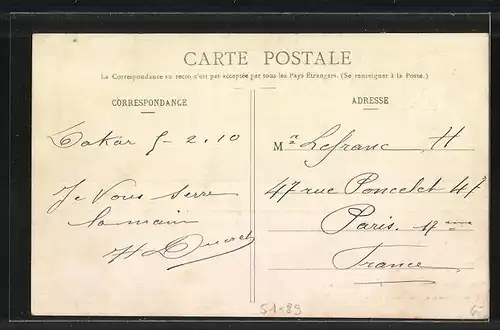 CARTE POSTALE
La Correspondance au recto n'est pas acceptée par tous les Pays Étrangers. (Se renseigner à la Poste.)
CORRESPONDANCE
Dakar 5-2.10
Je Vous serre
la main
ADRESSE
Mr Lefranc H
47 rue Poncelet 47
Paris. 17ème
France
51-89